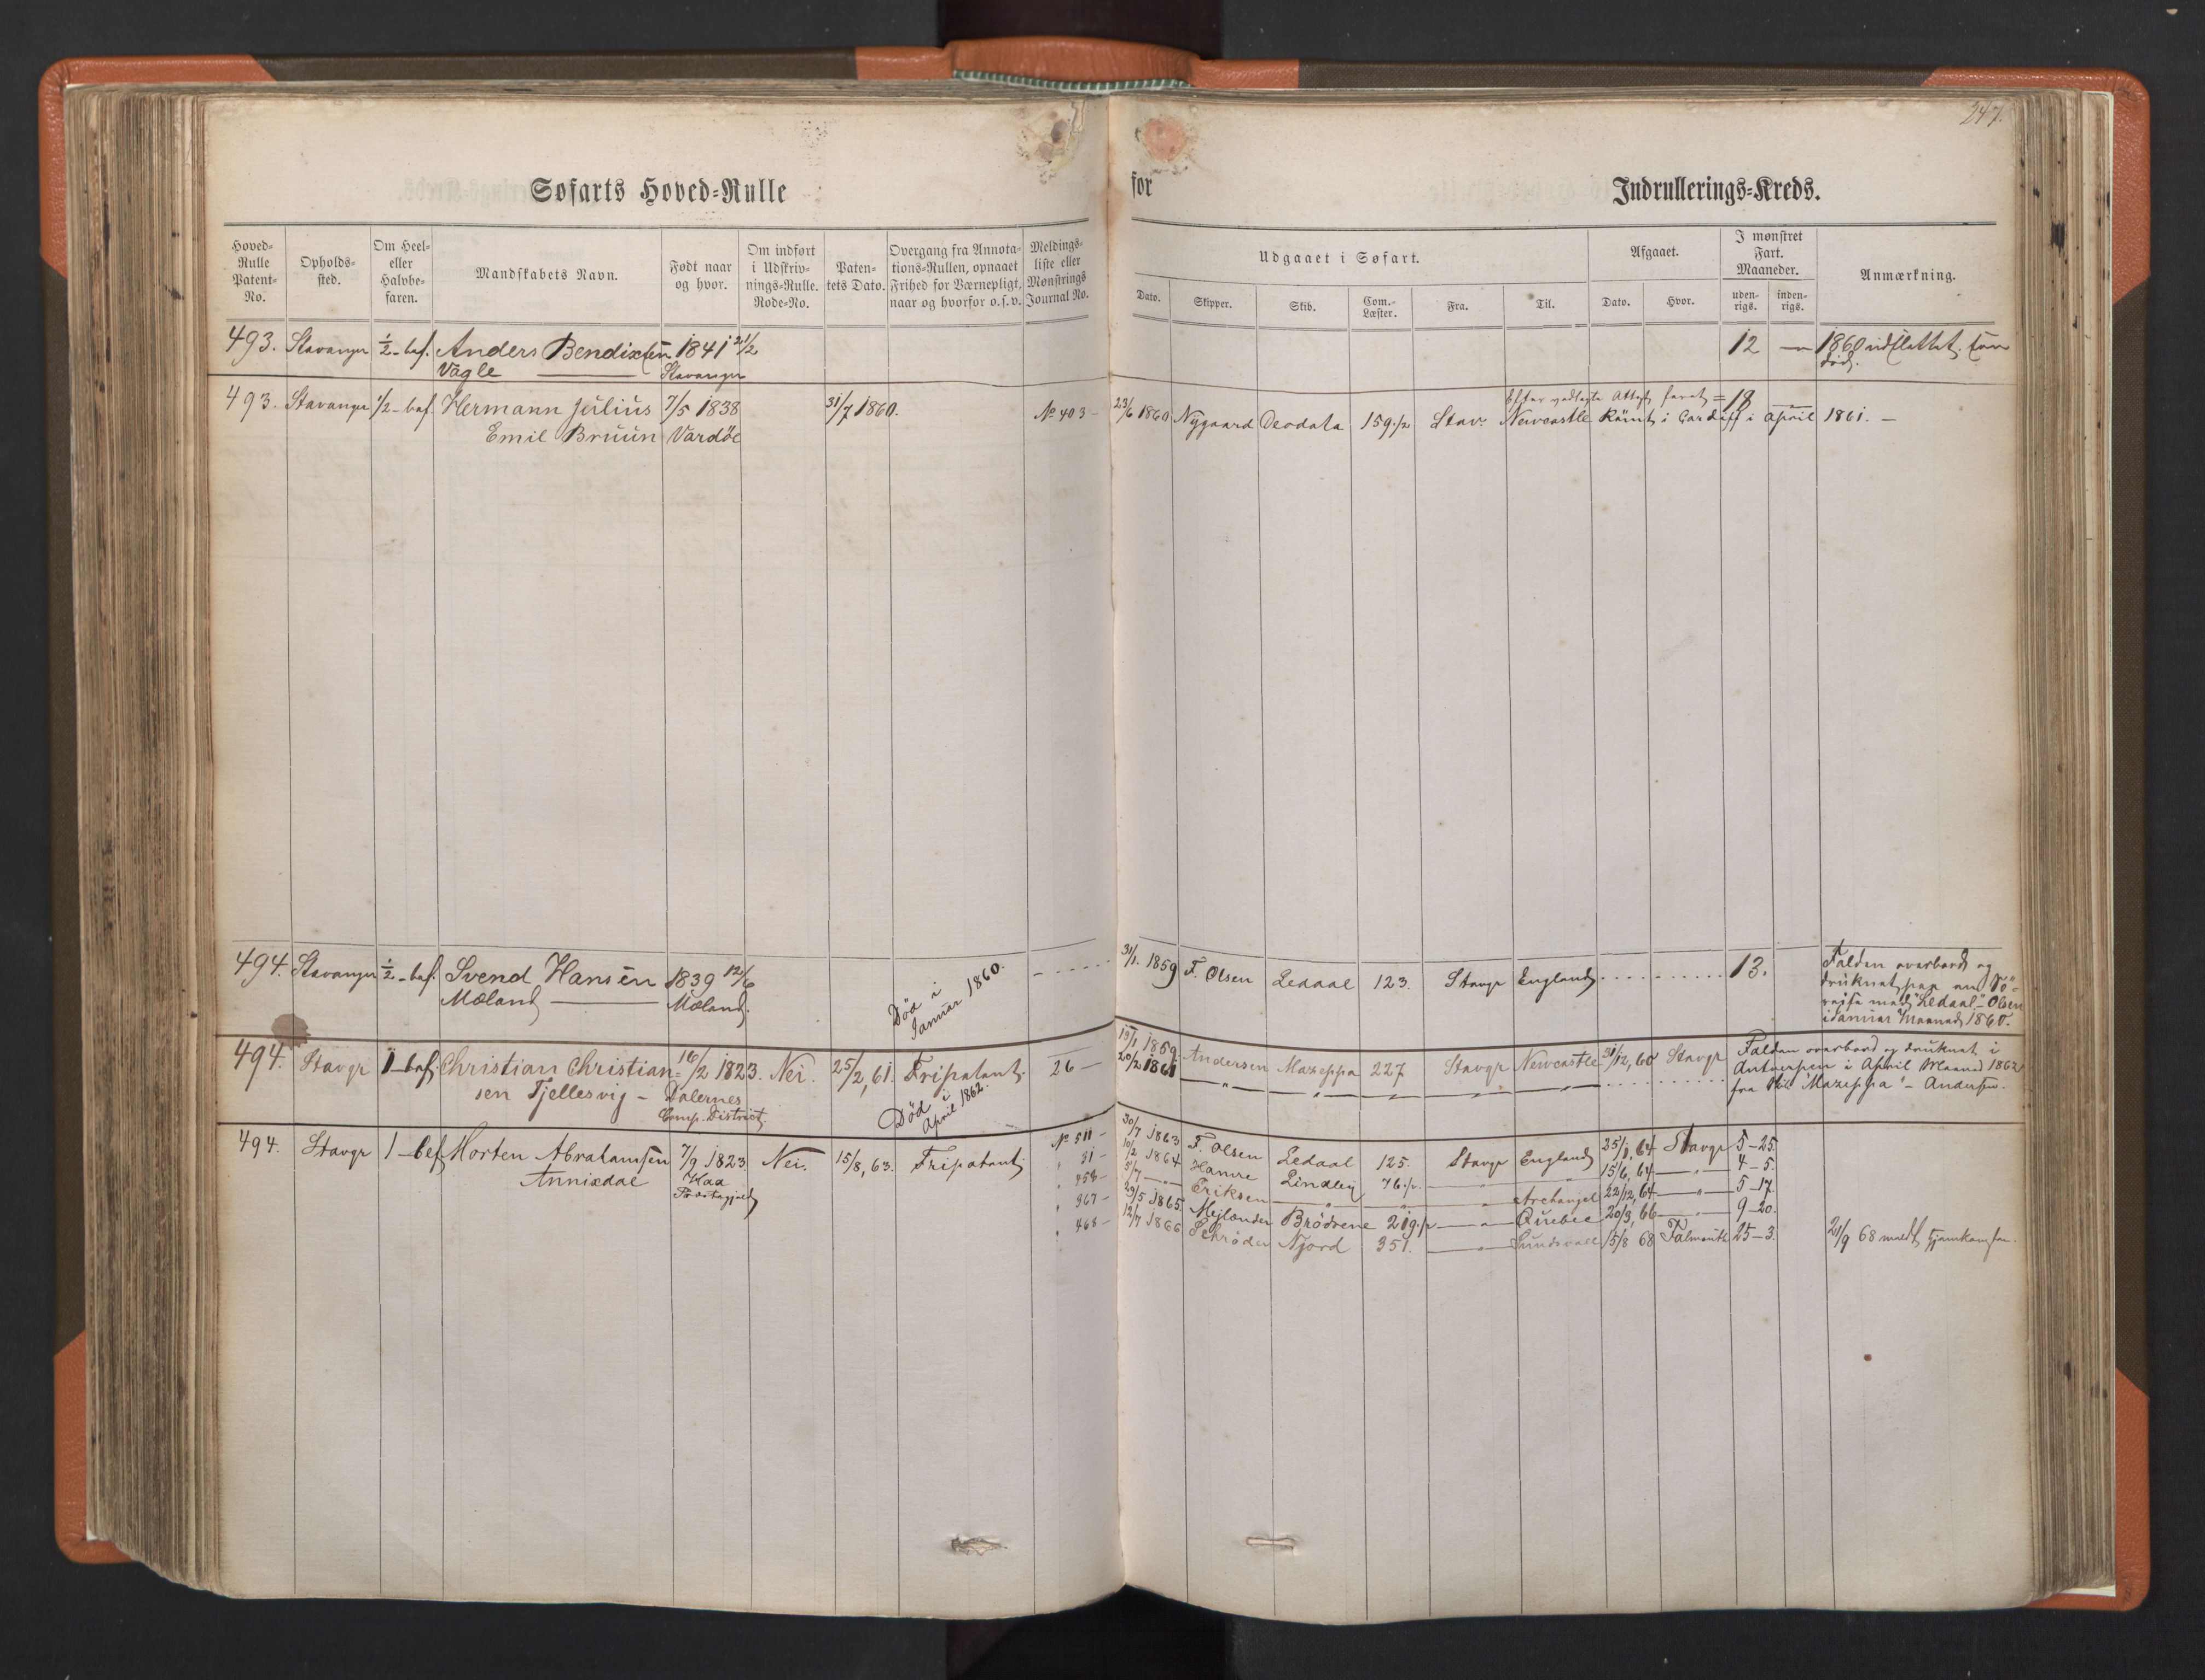 247.
Søfarts Hoved-Rulle
for
Indrullerings-Kreds.
Hoved-Rulle Patent-No.
Opholds-sted.
Om Heel- eller Halvbe-faren.
Mandskabets Navn.
Født naar og hvor.
Om indført i Udskriv-nings-Rulle. Rode-No.
Paten-tets Dato.
Overgang fra Annota-tions-Rullen, opnaaet Frihed for Værnepligt, naar og hvorfor o.s.v.
Meldings-liste eller Mønstrings Journal No.
Udgaaet i Søfart.
Afgaaet.
I mønstret Fart. Maaneder.
Anmærkning.
Dato.
Skipper.
Skib.
Com.-Læster.
Fra.
Til.
Dato.
Hvor.
uden-rigs.
inden-rigs.
493. Stavanger ½-bef. Anders Bendixsen 1841 21/2 12 — 1860 udslettet
Vagle — Stavanger død.
Attest faret = 18 —
493. Stavanger 1/2-bef. Hermann Julius 7/5 1838 31/7 1860. No 403 - 23/6 1860 Nygaard Deodata 159 1/2 Stavr. Newcastle Römt i Cardiff i April 1861. —
Emil Bruun Vardöe
494. Stavanger ½-bef. Svend Hansen 1839 12/6 Død i Januar 1860. - 31/1. 1859 F. Olsen Ledaal 123. Stavgr England 13. Falden overbord og
Mæland — Mæland. druknet paa en Sö-
reise med "Ledaal" - Olsen
i Januar Maaned 1860.
494. Stavgr 1-bef. Christian Christian- 16/2 1823. Nei. 25/2, 61. Fripatent. 26 — 19/1 1859. Andersen Mazeppa 227 Stavgr Newcastle 31/12, 60 Stavgr Falden overbord og druknet i
sen Tjellesvig - Dalernes Død i April 1862. 20/2 1861 — " — " — " — " — " Antwerpen i April Maaned 1862
Comp. District. fra Skib "Mazeppa" - Andersen.
494. Stavgr 1-bef Morten Abrahamsen 7/9 1823. Nei. 15/8, 63. Fripatent. No 511 - 30/7 1863 F. Olsen Ledaal 125. Stavgr England 25/1, 64 Stavgr 5-25.
Annixdal Haa " 31 - 10/2 1864 Hamre Lindley 76 1/2 — " — " 15/6, 64 — " — 4-5.
Præstegjeld " 458 - 5/7 — " — Eriksen — " — " — " Archangel 22/12, 64 — " — 5-17.
" 367 - 29/5 1865. Mejlænder Brödrene 219 1/2 — " — Quebec 20/3, 66 — " — 9-20.
" 468 - 12/7 1866 Schröder Njord 351. — " — Sundsvall 15/8 68 Falmouth 25-3. 21/9 68 meldt hjemkommen.